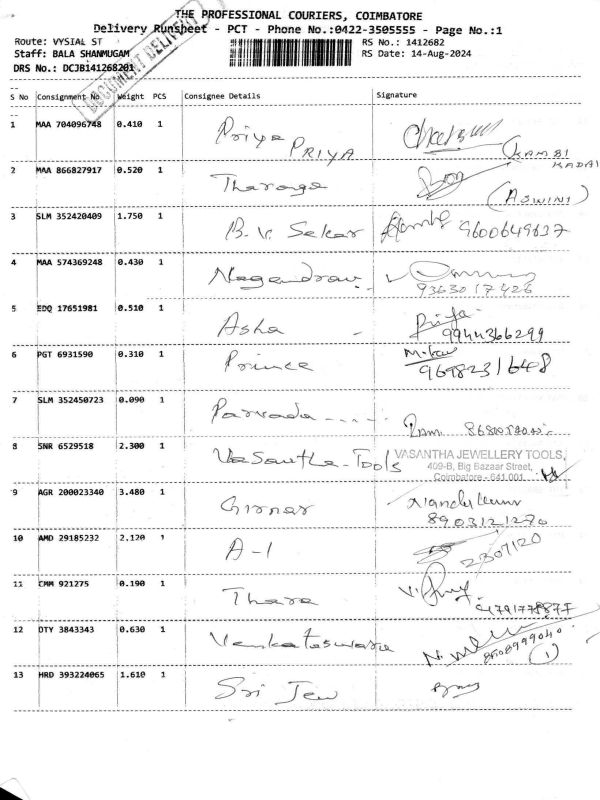 THE PROFESSIONAL COURIERS, COIMBATORE
Delivery Runsheet - PCT - Phone No.:0422-3505555 - Page No.:1
Route: VYSIAL ST
RS No.: 1412682
Staff: BALA SHANMUGAM
RS Date: 14-Aug-2024
DRS No.: DCJB141268201
DOCUMENT DELIVERY
S No Consignment No Weight PCS Consignee Details Signature
1 MAA 704096748 0.410 1 Priya PRIYA (KAMBI KADAI)
2 MAA 866827917 0.520 1 Tharange (ASWINI)
3 SLM 352420409 1.750 1 B.V. Sekar 9600649637
4 MAA 574369248 0.430 1 Nagendran 9363017426
5 EDQ 17651981 0.510 1 Asha - Priya 9944366299
6 PGT 6931590 0.310 1 Prince 9698231648
7 SLM 352450723 0.090 1 Parvada
8 SNR 6529518 2.300 1 Vasantha-Tools VASANTHA JEWELLERY TOOLS,
409-B, Big Bazaar Street,
Coimbatore - 641 001.
9 AGR 200023340 3.480 1 Girnar 8903121270
10 AMD 29185232 2.120 A-1 2307120
11 CMM 921275 0.190 1 Thara
12 DTY 3843343 0.630 1 Venkateswara 8608999040 1
13 HRD 393224065 1.610 1 Sri Jew